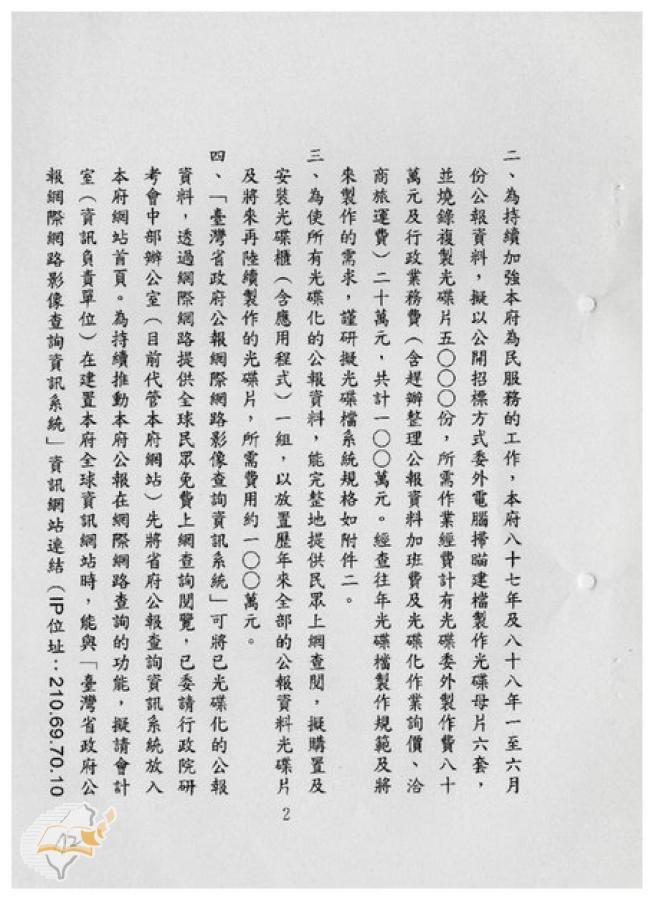 二、為持續加強本府為民服務的工作，本府八十七年及八十八年一至六月
份公報資料，擬以公開招標方式委外電腦掃瞄建檔製作光碟母片六套，
並燒錄複製光碟片五〇〇〇份，所需作業經費計有光碟委外製作費八十
萬元及行政業務費（含趕辦整理公報資料加班費及光碟化作業詢價、洽
商旅運費）二十萬元，共計一〇〇萬元。經查往年光碟檔製作規範及將
來製作的需求，謹研擬光碟檔系統規格如附件二。
三、為使所有光碟化的公報資料，能完整地提供民眾上網查閱，擬購置及
安裝光碟櫃（含應用程式）一組，以放置歷年來全部的公報資料光碟片
及將來再陸續製作的光碟片，所需費用約一〇〇萬元。
四、「臺灣省政府公報網際網路影像查詢資訊系統」可將已光碟化的公報
資料，透過網際網路提供全球民眾免費上網查詢閱覽，已委請行政院研
考會中部辦公室（目前代管本府網站）先將省府公報查詢資訊系統放入
本府網站首頁。為持續推動本府公報在網際網路查詢的功能，擬請會計
室（資訊負責單位）在建置本府全球資訊網站時，能與「臺灣省政府公
報網際網路影像查詢資訊系統」資訊網站連結（IP位址：210.69.70.10
2
12